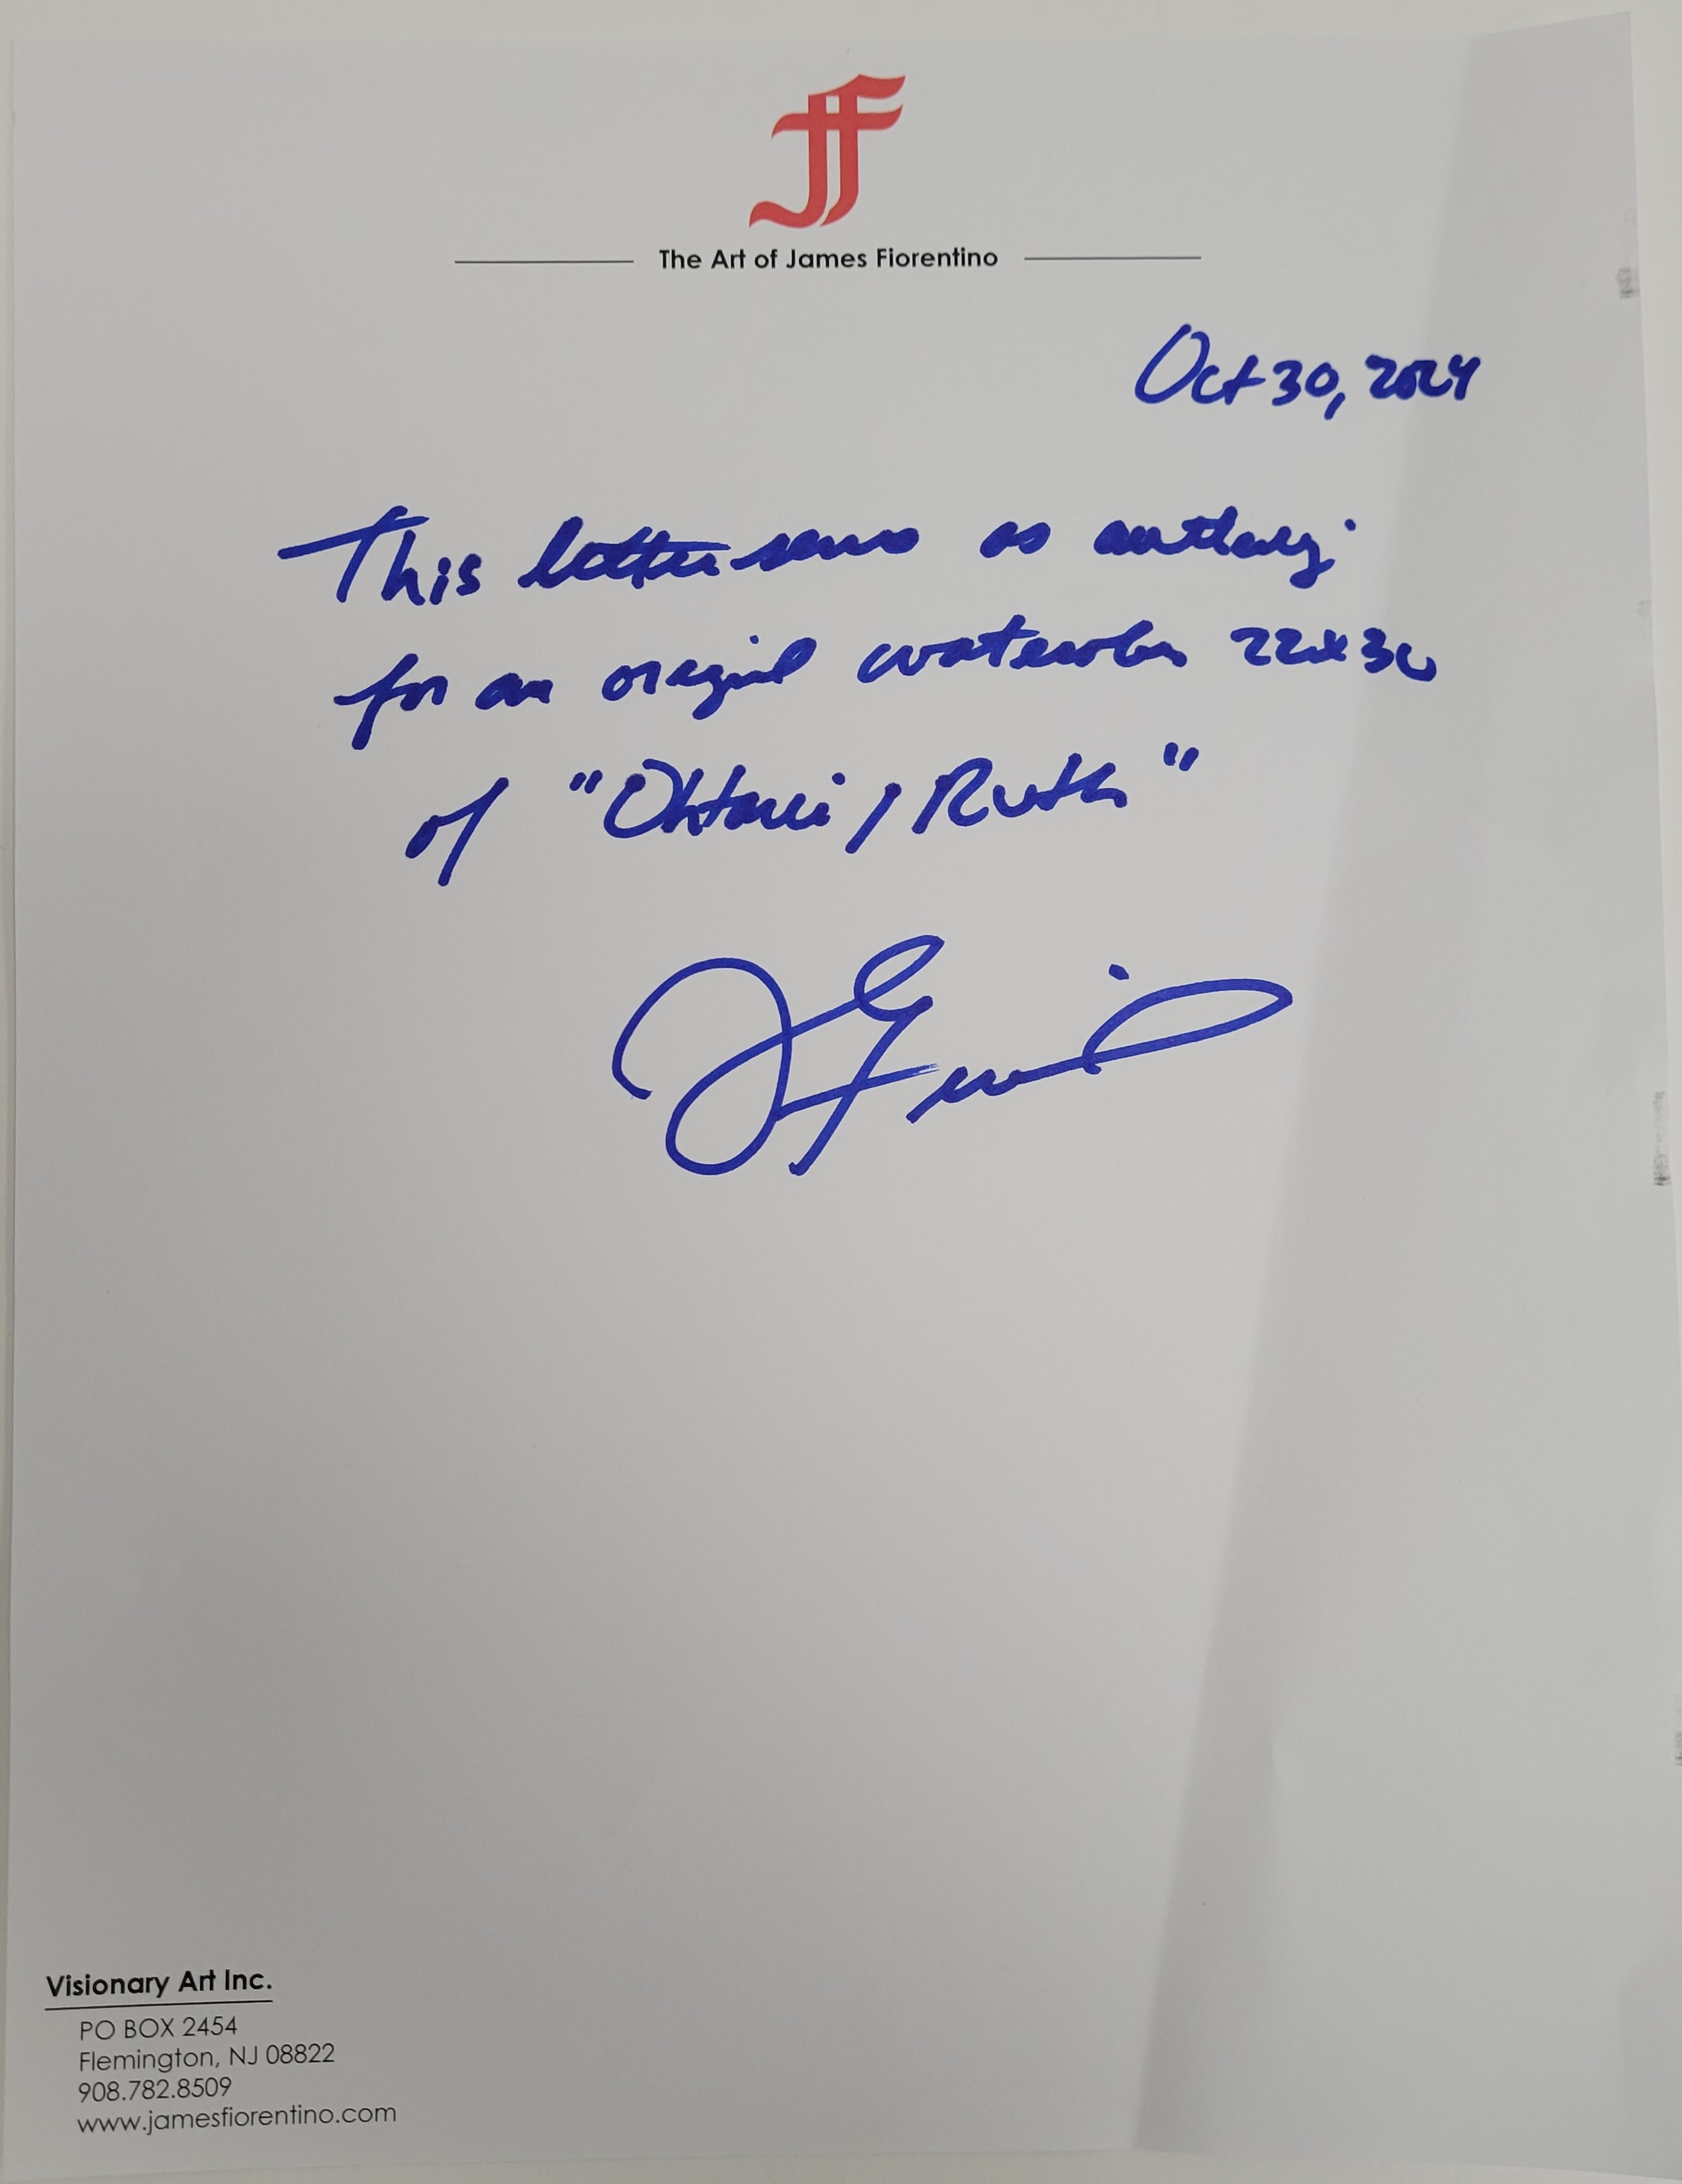 JF
The Art of James Fiorentino
Oct 30, 2024
This letter serves as
for an original watercolor 22x30
of "Ohtani / Ruth"
Visionary Art Inc.
PO BOX 2454
Flemington, NJ 08822
908.782.8509
www.jamesfiorentino.com